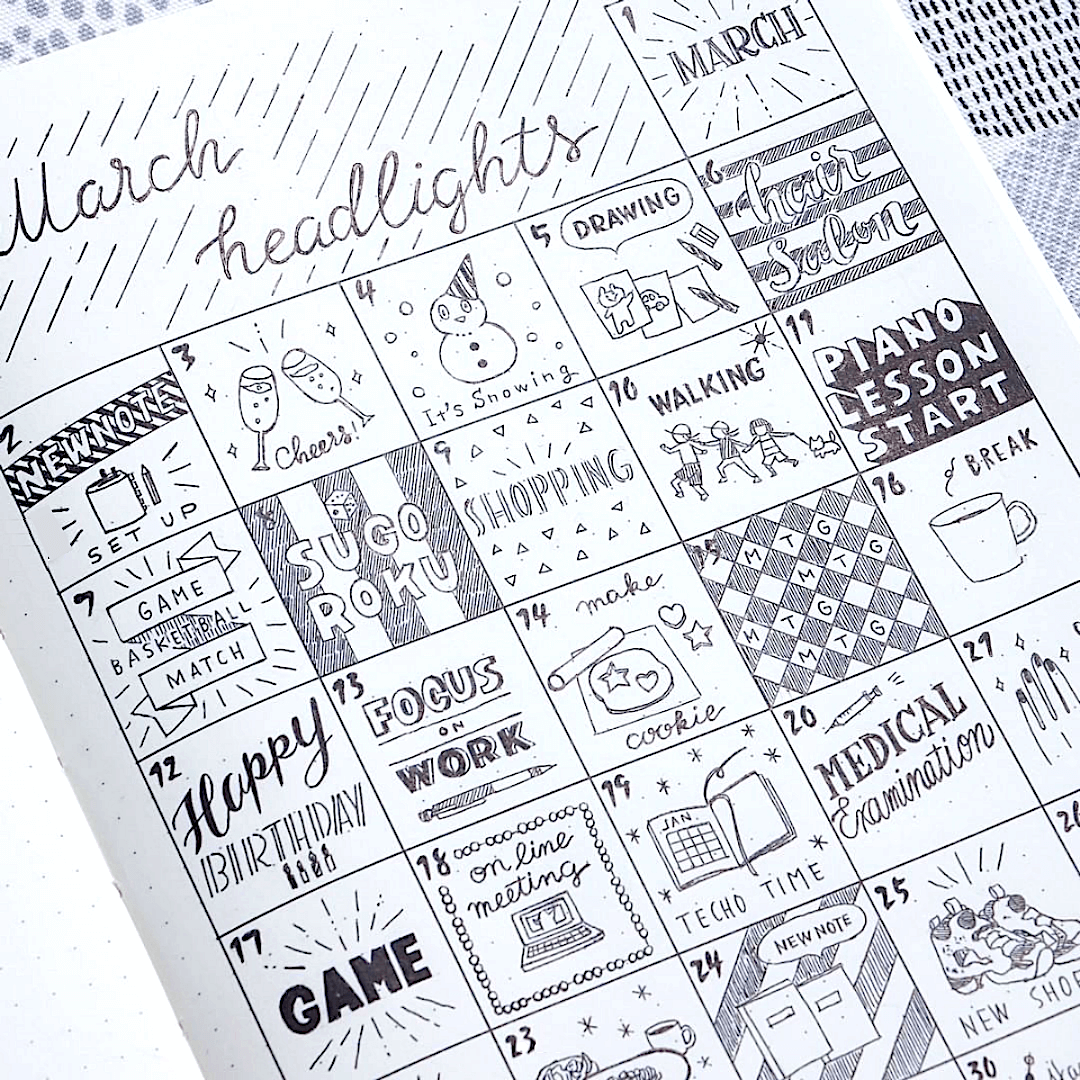 March
headlights
1
MARCH
2
NEW NOTE
SET UP
3
Cheers!
4
It's Snowing
5
DRAWING
6
hair
Salon
7
GAME
BASKETBALL
MATCH
8
SUGO
ROKU
9
SHOPPING
10
WALKING
11
PIANO
LESSON
START
12
Happy
BIRTHDAY
13
FOCUS
ON
WORK
14
make
cookie
15
M T G
M T G
M T G
M T G
16
BREAK
17
GAME
18
on line
meeting
19
JAN.
TECHO TIME
20
MEDICAL
Examination
21
23
24
NEW NOTE
25
NEW SHOE
30